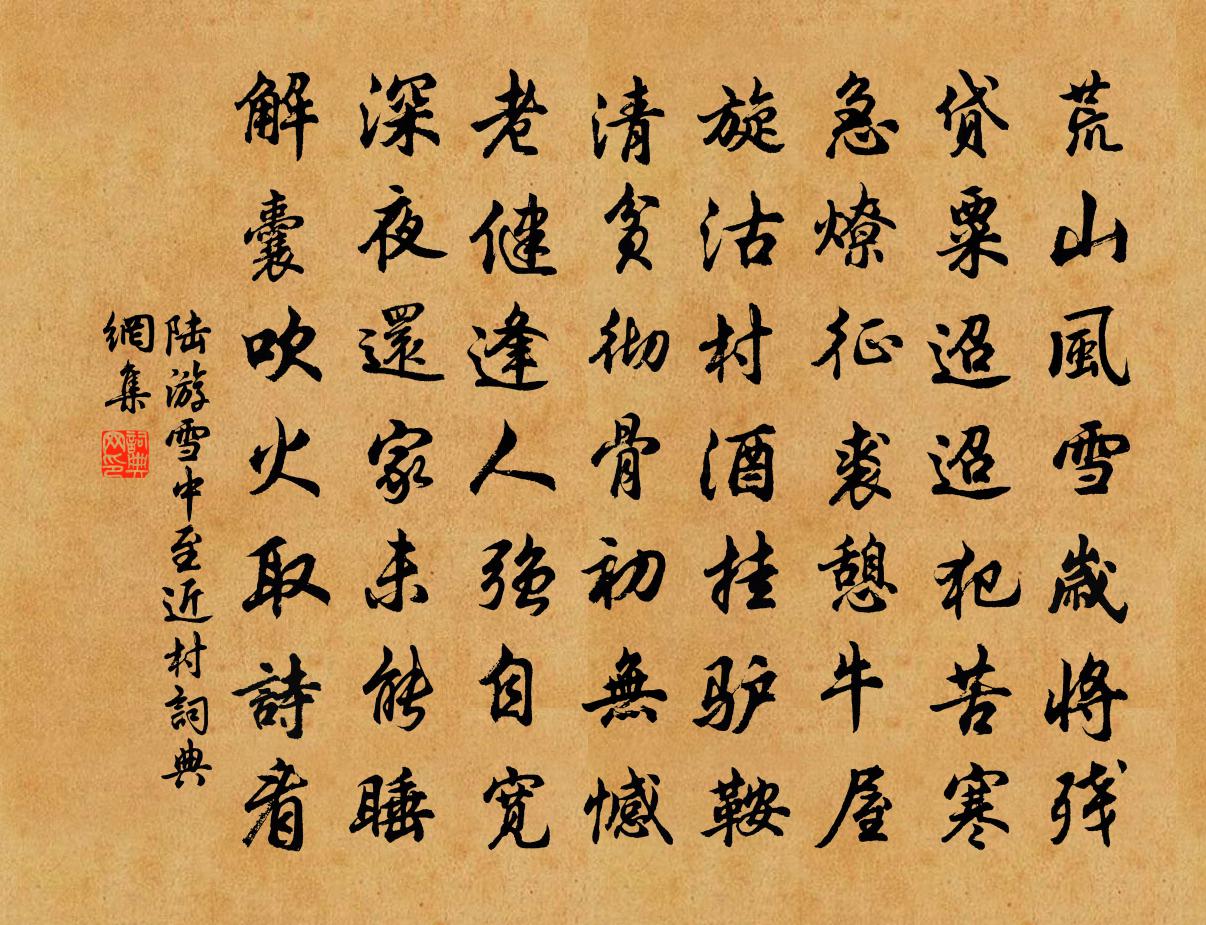 荒山風雪歲將残
貸粟迢迢犯苦寒
急燎征裘憩牛屋
旋沽村酒挂驴鞍
清貧徹骨初無憾
老健逢人強自宽
深夜還家未能睡
解囊吹火取詩看
陆游雪中至近村詞典
網集
詞典
网印